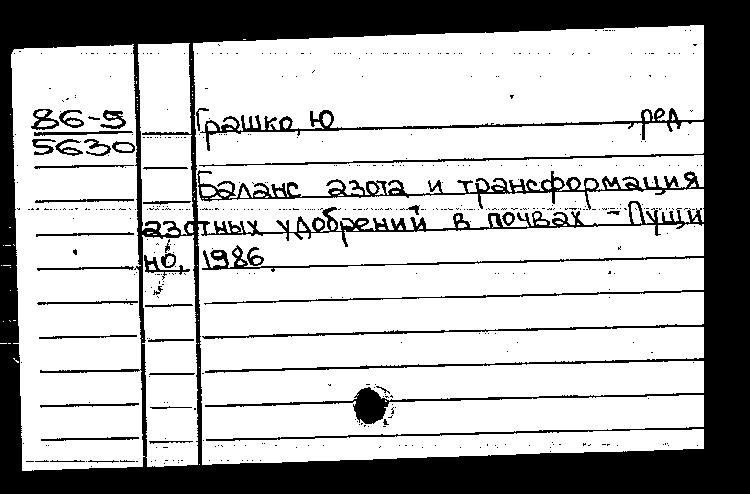 86-5 Грашко, Ю , ред.
5630
Баланс азота и трансформация
азотных удобрений в почвах. - Пущи
но, 1986.